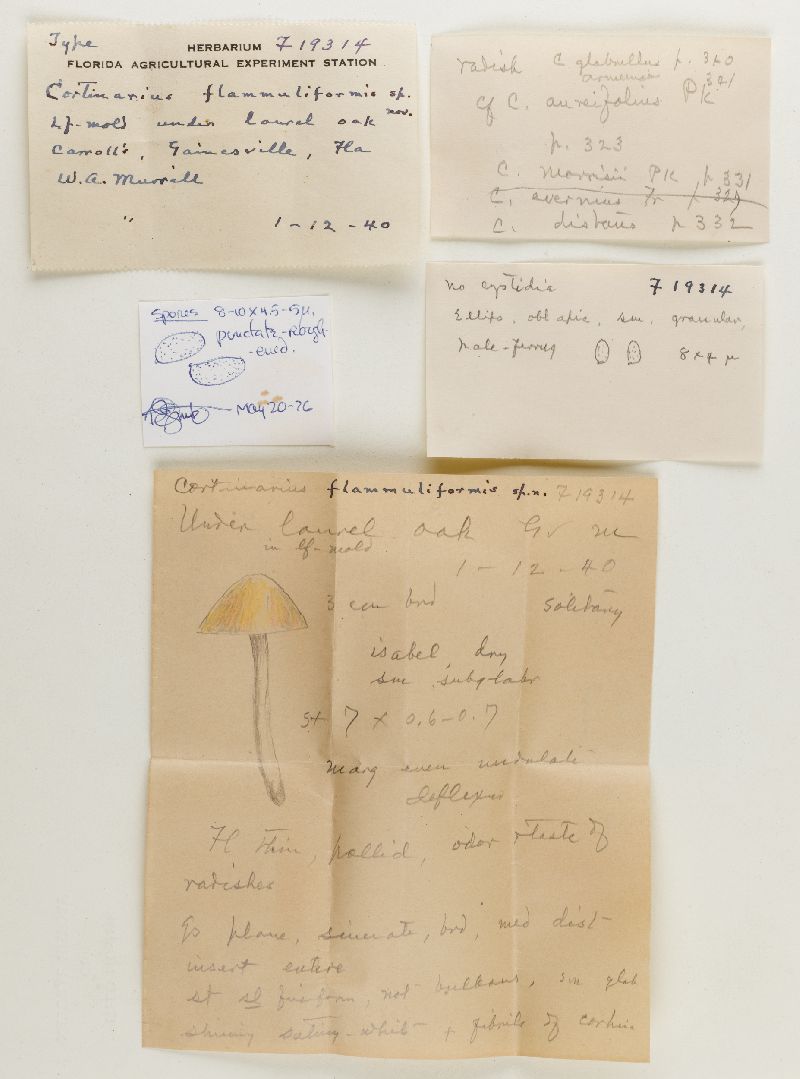 Type HERBARIUM F19314
FLORIDA AGRICULTURAL EXPERIMENT STATION
Cortinarius flammuliformis sp.
nov.
Lf-mold under laurel oak
Carroll's, Gainesville, Fla
W.A. Murrill
" 1-12-40
radish C glabrellus p. 320
armeniac 321
cf C. aureifolius PK
p. 323
C. morrisii PK p 331
C. distans p 332
Spores 8-10 x 4.5-5µ,
punctate-rough
-ened.
May 20-76
no cystidia F19314
Ellips. obl apic, sm, granular,
pale-ferrug 8x4 µ
Cortinarius flammuliformis sp.n. F19314
Under laurel oak Gv m
in lf-mold
1-12-40
3 cm brd solitary
isabel dry
sm subglabr
st 7 x 0.6-0.7
marg even undulate
deflexed
Fl thin, pallid, odor & taste of
radishes
Gs plane, sinuate, brd, med dist
insert entire
st sl fusiform, not bulbous, sm glab
shining satiny-whit + fibrils of cortina